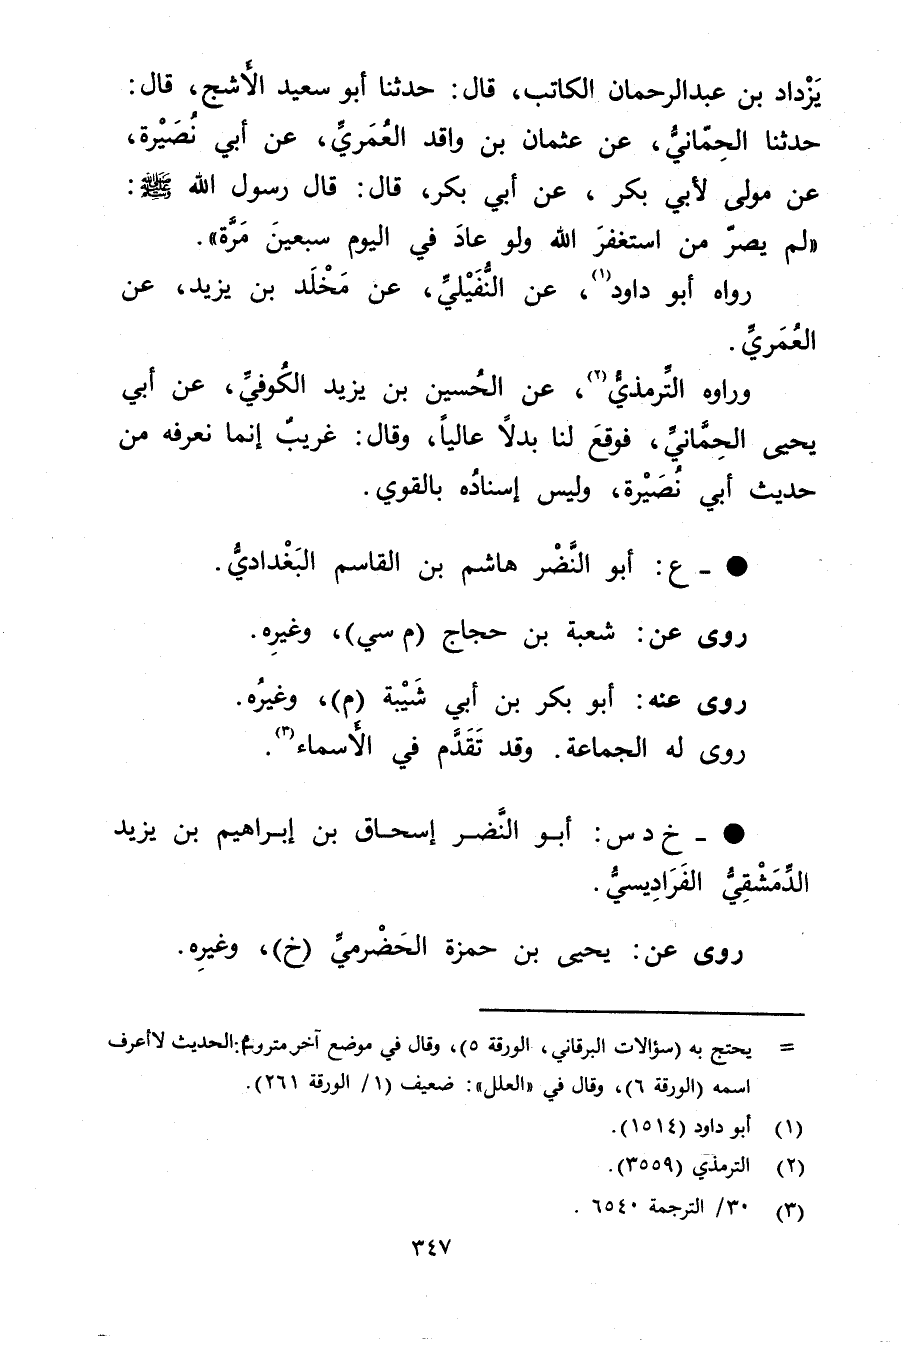 يَزْداد بن عبدالرحمان الكاتب، قال: حدثنا أبو سعيد الأَشج، قال:
حدثنا الحِمّانيُّ، عن عثمان بن واقد العُمَريِّ، عن أبي نُصَيْرة،
عن مولى لأبي بكر ، عن أبي بكر، قال: قال رسول الله ﷺ:
«لم يصرّ من استغفرَ الله ولو عادَ في اليوم سبعينَ مَرَّة».
رواه أبو داود(١)، عن النُّفَيْليِّ، عن مَخْلَد بن يزيد، عن
العُمَريِّ.
وراوه التِّرمذيُّ(٢)، عن الحُسين بن يزيد الكُوفيِّ، عن أبي
يحيى الحِمَّانيِّ، فوقعَ لنا بدلاً عالياً، وقال: غريبٌ إنما نعرفه من
حديث أبي نُصَيْرة، وليس إسنادُه بالقوي.
● ـ ع: أبو النَّضْر هاشم بن القاسم البَغْداديُّ.
روى عن: شعبة بن حجاج (م سي)، وغيرِه.
روى عنه: أبو بكر بن أبي شَيْبة (م)، وغيرُه.
روى له الجماعة. وقد تَقَدَّم في الأَسماء(٣).
● ـ خ د س: أبو النَّضر إسحاق بن إبراهيم بن يزيد
الدِّمَشْقِيُّ الفَرَادِيسيُّ.
روى عن: يحيى بن حمزة الحَضْرميِّ (خ)، وغيرِه.
= يحتج به (سؤالات البرقاني، الورقة ٥)، وقال في موضع آخر متروك الحديث لاأعرف
اسمه (الورقة ٦)، وقال في «العلل»: ضعيف (١/ الورقة ٢٦١).
(١) أبو داود (١٥١٤).
(٢) الترمذي (٣٥٥٩).
(٣) ٣٠/ الترجمة ٦٥٤٠ .
٣٤٧